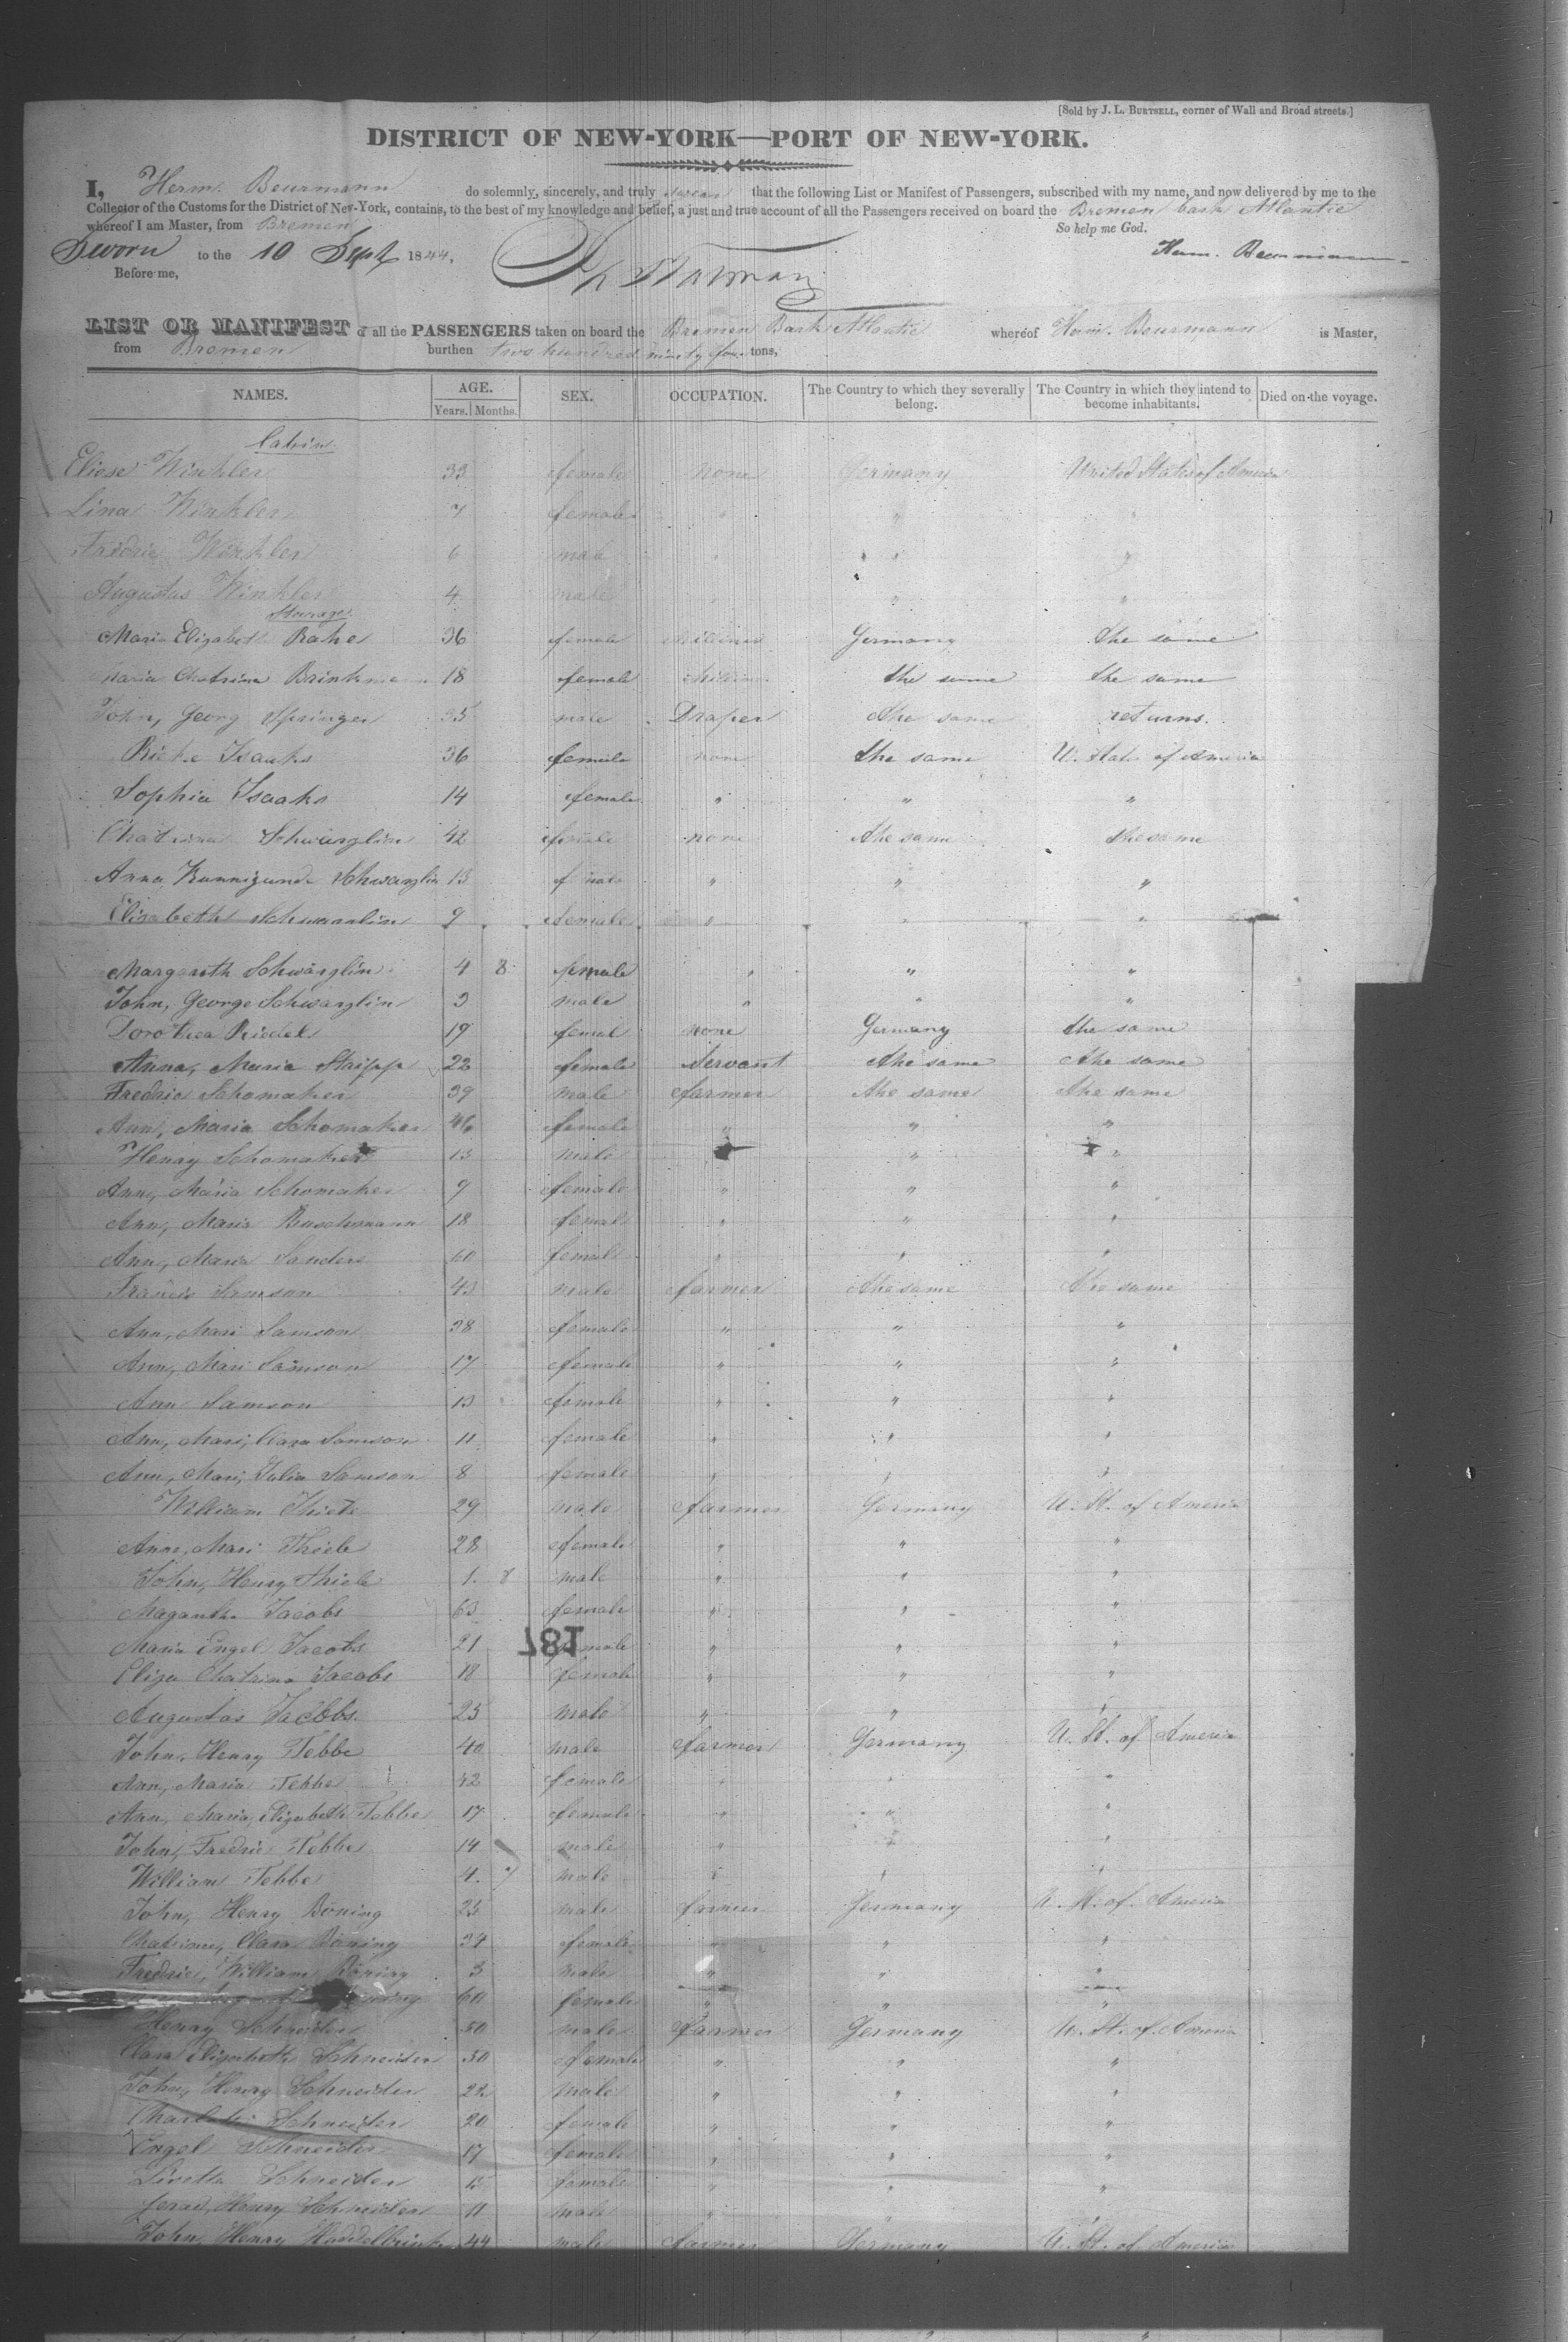 [Sold by J. L. BURTSELL, corner of Wall and Broad streets.]
DISTRICT OF NEW-YORK—PORT OF NEW-YORK.
I, Herm. Beurmann do solemnly, sincerely, and truly swear that the following List or Manifest of Passengers, subscribed with my name, and now delivered by me to the
Collector of the Customs for the District of New-York, contains, to the best of my knowledge and belief, a just and true account of all the Passengers received on board the Bremen bark Atlantic
whereof I am Master, from Bremen So help me God.
Sworn to the 10 Sept 1844, Herm. Beurmann
Before me,
LIST OR MANIFEST of all the PASSENGERS taken on board the Bremen Bark Atlantic whereof Herm. Beurmann is Master,
from Bremen burthen two hundred ninety four tons,
NAMES. AGE. SEX. OCCUPATION. The Country to which they severally belong. The Country in which they intend to become inhabitants. Died on the voyage.
Years. Months.
Cabin
Eliese Winkler 33 female none Germany United States of America
Lina Winkler 7 female " " "
Fredric Winkler 6 male " " "
Augustus Winkler 4 male " " "
Steerage
Maria Elizabeth Rake 36 female Germany the same
Maria Chatrina Brinkman 18 female the same the same
John, Georg Springer 35 male Draper the same returns.
Ricke Isaaks 36 female none the same U. States of America
Sophia Isaaks 14 female " " "
Chatrina Schwarzlin 42 female none the same the same
Anna Kunnigunde Schwarzlin 13 female " " "
Elisabeth Schwarzlin 9 female " " "
Margareth Schwärzlin 4 8 female " " "
John, George Schwarzlin 3 male " " "
Dorothea Riedel 19 femal none Germany the same
Anna, Maria 22 female Servant the same the same
Fredric Schomaker 39 male farmer the same the same
Ann, Maria Schomaker 46 female " " "
Henry Schomaker 13 male " " "
Ann, Maria Schomaker 9 female " " "
Ann, Maria Buschmann 18 female " " "
Ann, Maria Sanders 60 female " " "
Francis Samson 43 male farmer the same the same
Ann, Mari Samson 38 female " " "
Ann, Mari Samson 17 female " " "
Ann Samson 13 female " " "
Ann, Mari, Clara Samson 11 female " " "
Ann, Mari, Julia Samson 8 female " " "
William Thiele 29 male farmer Germany U. St. of America
Ann, Mari Thiele 28 female " " "
John, Henry Thiele 1 8 male " " "
Jacobs 63 female " " "
Maria Engel Jacobs 21 female " " "
187
Eliza Chatrina Jacobs 18 female " " "
Augustus Jacobs. 25 male " " "
John, Henry Tebbe 40 male farmer Germany U. St. of America
Ann, Maria Tebbe 42 female " " "
Ann, Maria, Elizabeth Tebbe 17 female " " "
John, Fredric Tebbe 14 male " " "
William Tebbe 4 7 male " " "
John, Henry Böning 25 male farmer Germany U. St. of America
Chatrina, Clara Böning 34 female " " "
Fredric, William Böning 3 male " " "
60 female " " "
Henry Schneider 50 male farmer Germany U. St. of America
Clara Elizabeth Schneider 50 female " " "
John, Henry Schneider 22 male " " "
Charlotte Schneider 20 female " " "
Engel Schneider 17 female " " "
Schneider 15 female " " "
Henry Schneider 11 male " " "
John, Henry 44 male farmer Germany U. St. of America